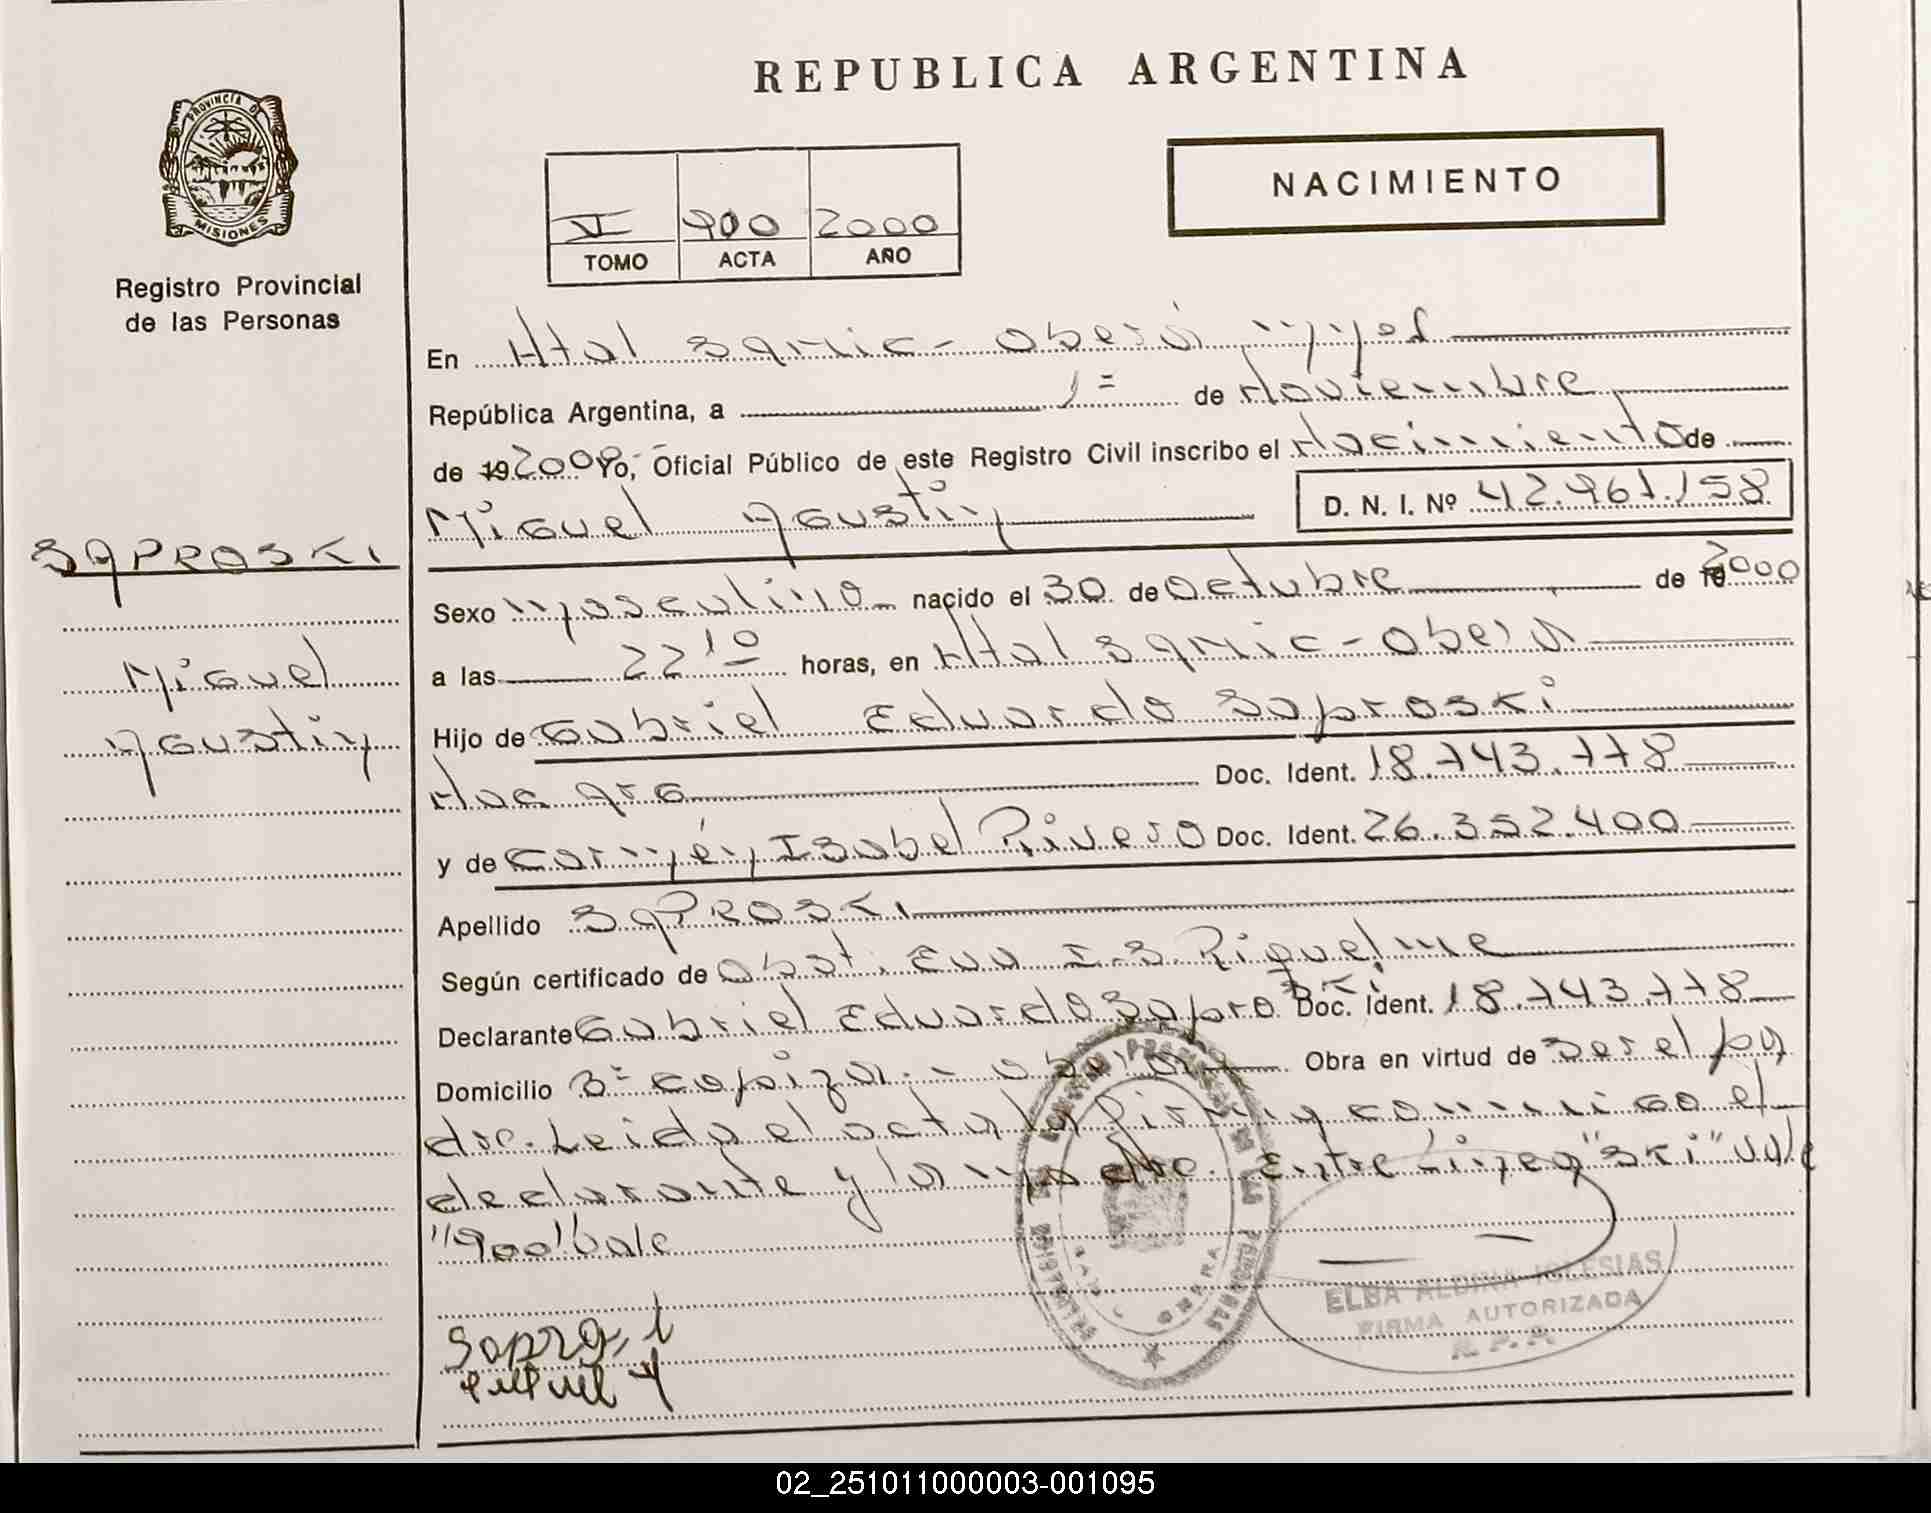 REPUBLICA ARGENTINA
PROVINCIA DE
MISIONES
Registro Provincial
de las Personas
NACIMIENTO
VI 900 2000
TOMO ACTA AÑO
En Htal Samic - Oberá Mnes
República Argentina, a 1= de Noviembre
de 19 2000 Yo, Oficial Público de este Registro Civil inscribo el Nacimiento de
Miguel Agustin D. N. I. Nº 42.961.158
SAPROSKI
Miguel
Agustin
Sexo Masculino nacido el 30 de Octubre de 19 2000
a las 22 10 horas, en Htal Samic - Oberá
Hijo de Gabriel Eduardo Saproski
Nac Arg Doc. Ident. 18.743.778
y de Carmén Isabel Rivero Doc. Ident. 26.352.400
Apellido SAPROSKI
Según certificado de Obst. Eva I. S. Riquelme
Declarante Gabriel Eduardo Saproski Doc. Ident. 18.743.778
Domicilio B= Capizar - Oberá Obra en virtud de Ser el pa
dre. Leida el acta la firman conmigo el
declarante y la madre. Entre linea "SKI" vale
"900" vale
ELBA ALDINA IGLESIAS
FIRMA AUTORIZADA
R. P. P.
02_251011000003-001095